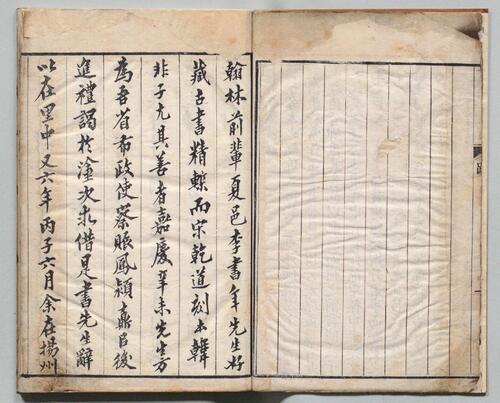 翰林前輩夏邑李書年先生好
藏古書精槧而宋乾道刻本韓
非子尤其善者嘉慶辛未先生方
為吾省布政使察賑鳳潁鼒自後
進禮謁於塗次求借是書先生辭
以在里中又六年丙子六月余在揚州
跋